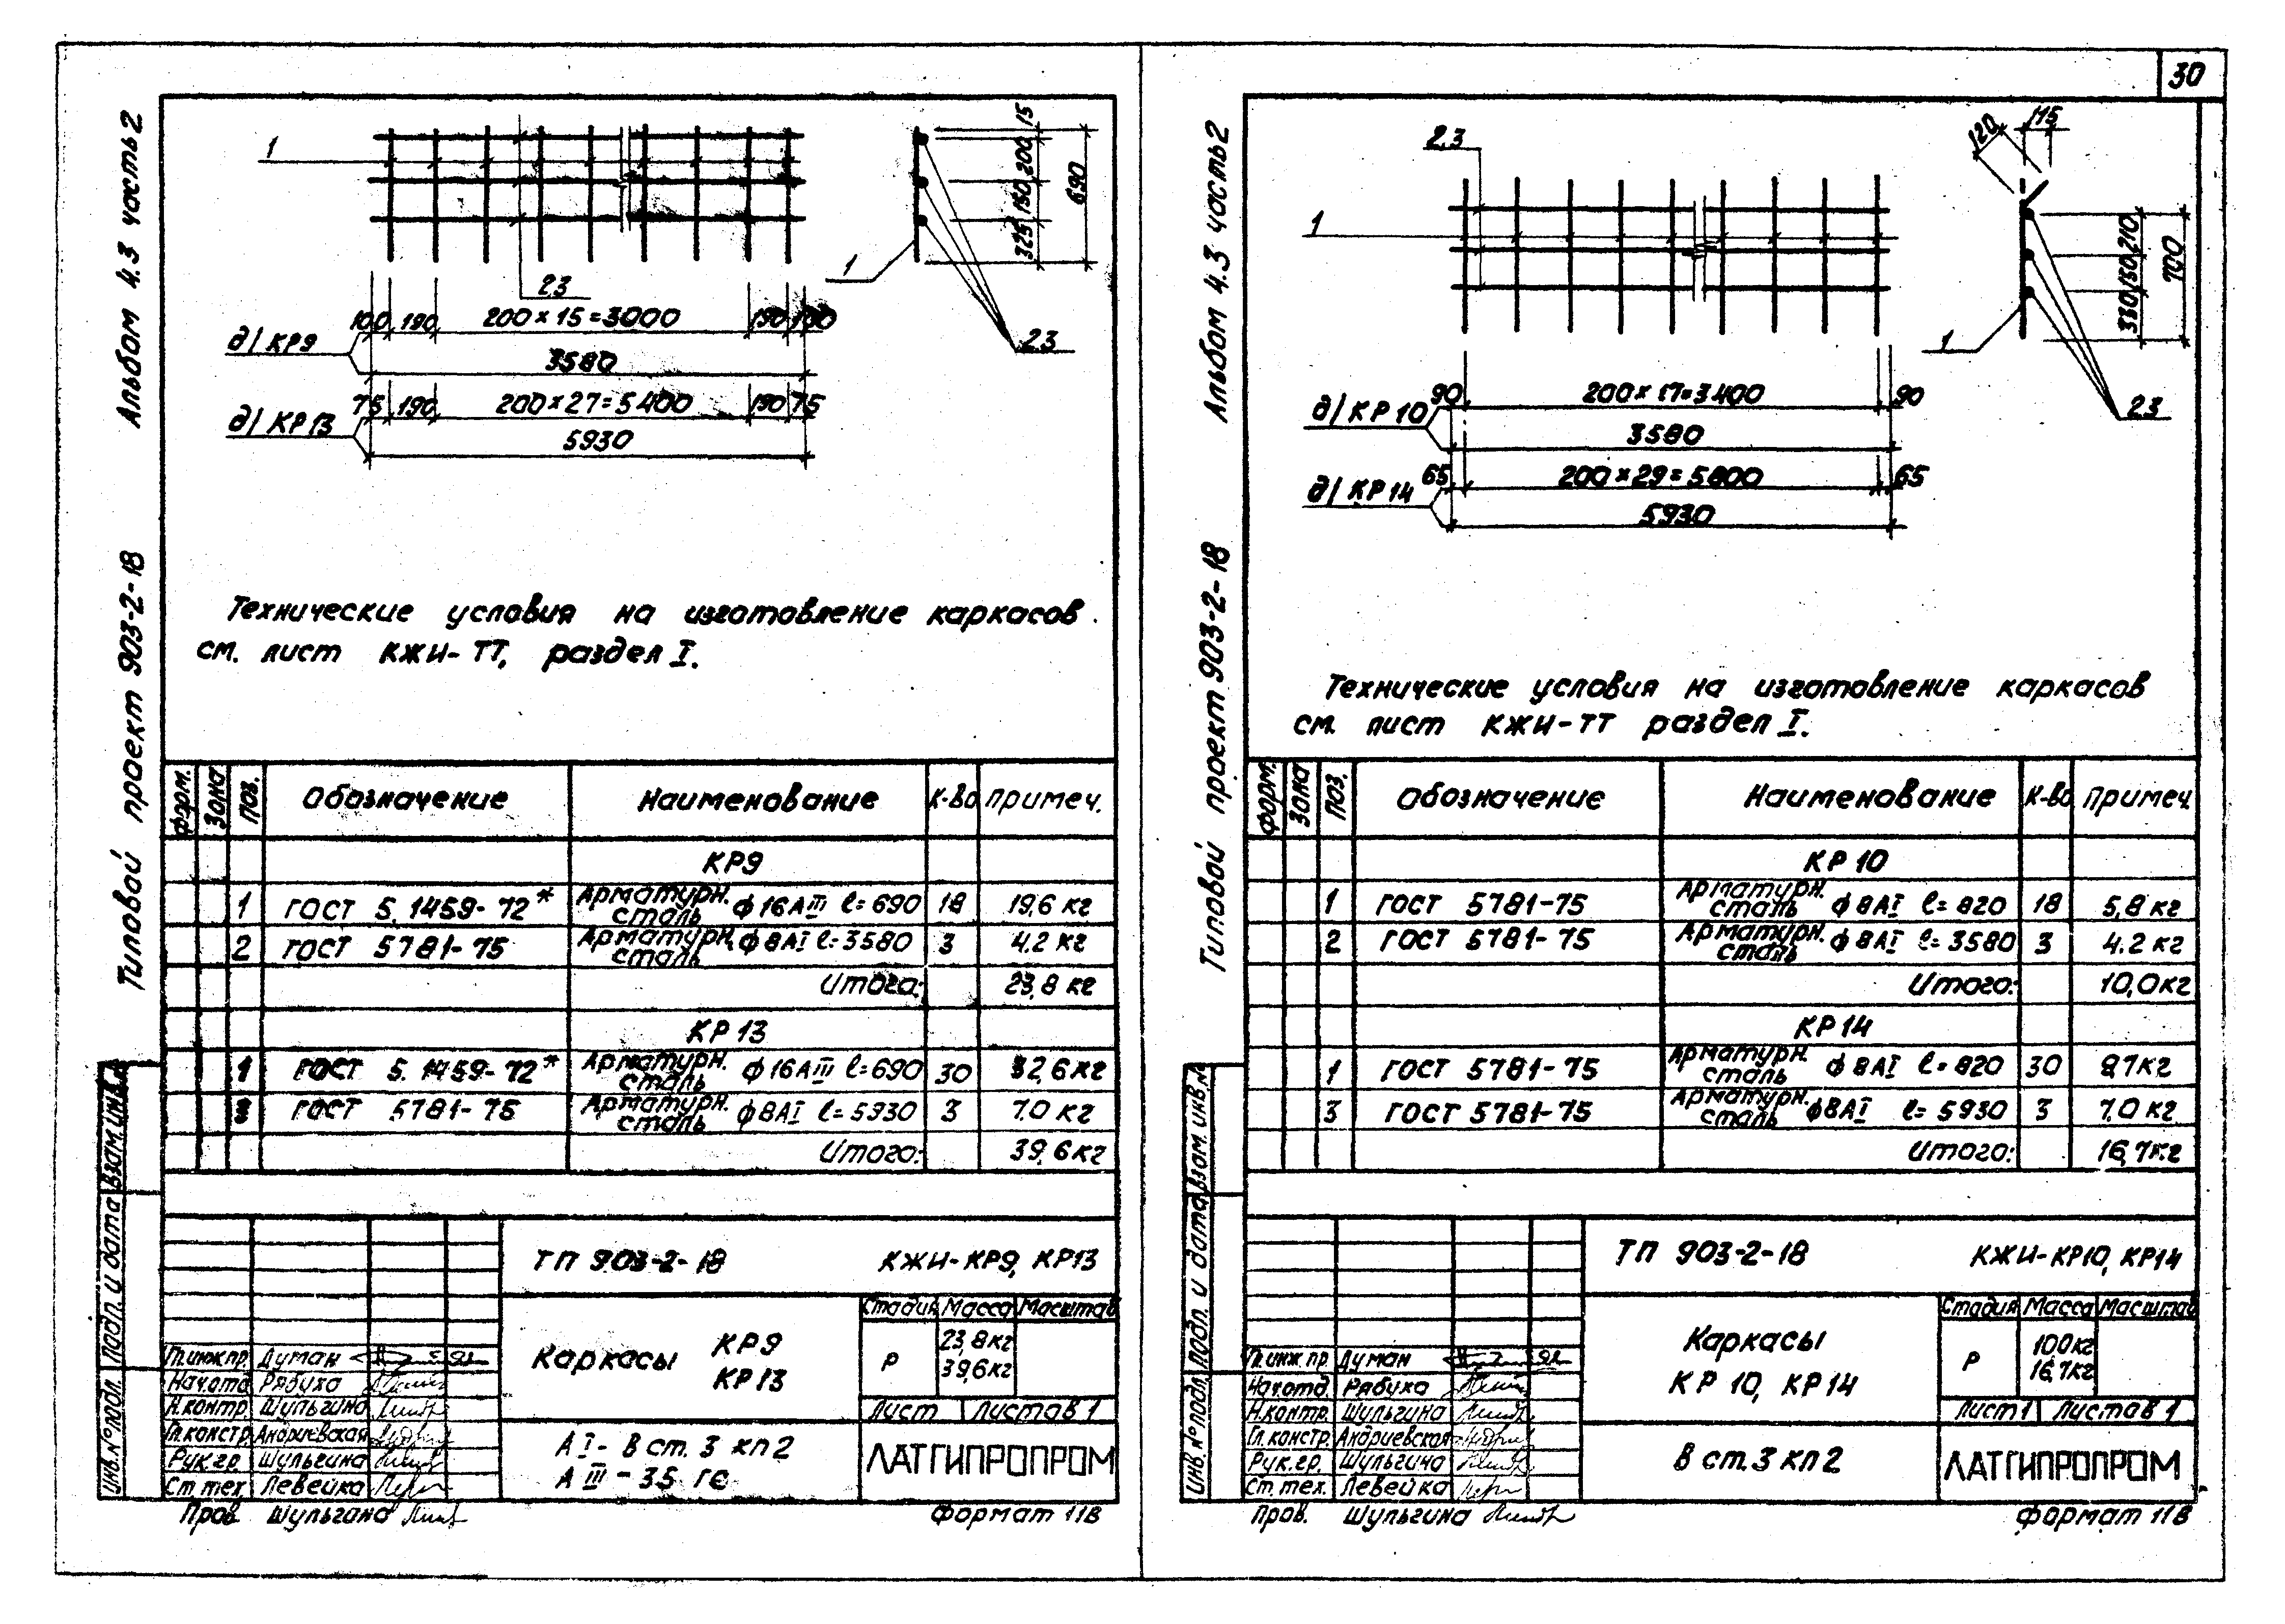 30
Альбом 4.3 часть 2
Типовой проект 903-2-18
1
15
200
150
325
690
1
2,3
2,3
100 190 200×15=3000 190 100
д/ КР9
3580
75 190 200×27=5400 190 75
д/ КР13
5930
Технические условия на изготовление каркасов
см. лист КЖИ-ТТ, раздел I.
форм. Зона Поз. Обозначение Наименование К-во Примеч.
КР9
1 ГОСТ 5.1459-72* Арматурн. сталь ф16АIII l=690 18 19,6 кг
2 ГОСТ 5781-75 Арматурн. сталь ф8АI l=3580 3 4.2 кг
Итого: 23,8 кг
КР13
1 ГОСТ 5.1459-72* Арматурн. сталь ф16АIII l=690 30 32,6 кг
3 ГОСТ 5781-75 Арматурн. сталь ф8АI l=5930 3 7.0 кг
Итого: 39,6 кг
Взам.инв.№
Подп. и дата
Инв.№подл.
ТП 903-2-18 КЖИ-КР9, КР13
Каркасы КР9
КР13
Стадия Масса Масштаб
Р 23,8кг
39,6кг
Лист Листов 1
Гл.инж.пр. Думан
Нач.отд Рябуха
Н.контр Шульгина
Гл.констр. Андриевская
Рук.гр. Шульгина
Ст.тех. Левейка
Пров. Шульгина
АI- В ст. 3 кп2
АIII - 35 ГС
ЛАТГИПРОПРОМ
Формат 11В
Альбом 4.3 часть 2
Типовой проект 903-2-18
2,3
1
120
115
210
150
330
700
1
2,3
90 200×17=3400 90
д/ КР10
3580
65 200×29=5800 65
д/ КР14
5930
Технические условия на изготовление каркасов
см. лист КЖИ-ТТ раздел I.
форм. Зона Поз. Обозначение Наименование К-во Примеч.
КР10
1 ГОСТ 5781-75 Арматурн. сталь ф8АI l=820 18 5,8 кг
2 ГОСТ 5781-75 Арматурн. сталь ф8АI l=3580 3 4.2 кг
Итого: 10,0кг
КР14
1 ГОСТ 5781-75 Арматурн. сталь ф8АI l=820 30 9,7кг
3 ГОСТ 5781-75 Арматурн. сталь ф8АI l=5930 3 7.0 кг
Итого: 16,7кг
Взам.инв.№
Подп. и дата
Инв.№подл.
ТП 903-2-18 КЖИ-КР10, КР14
Каркасы
КР 10, КР14
Стадия Масса Масштаб
Р 10,0кг
16,7кг
Лист 1 Листов 1
Гл.инж.пр. Думан
Нач.отд. Рябуха
Н.контр. Шульгина
Гл.констр. Андриевская
Рук.гр. Шульгина
Ст.тех. Левейка
Пров. Шульгина
В ст.3 кп2
ЛАТГИПРОПРОМ
Формат 11В